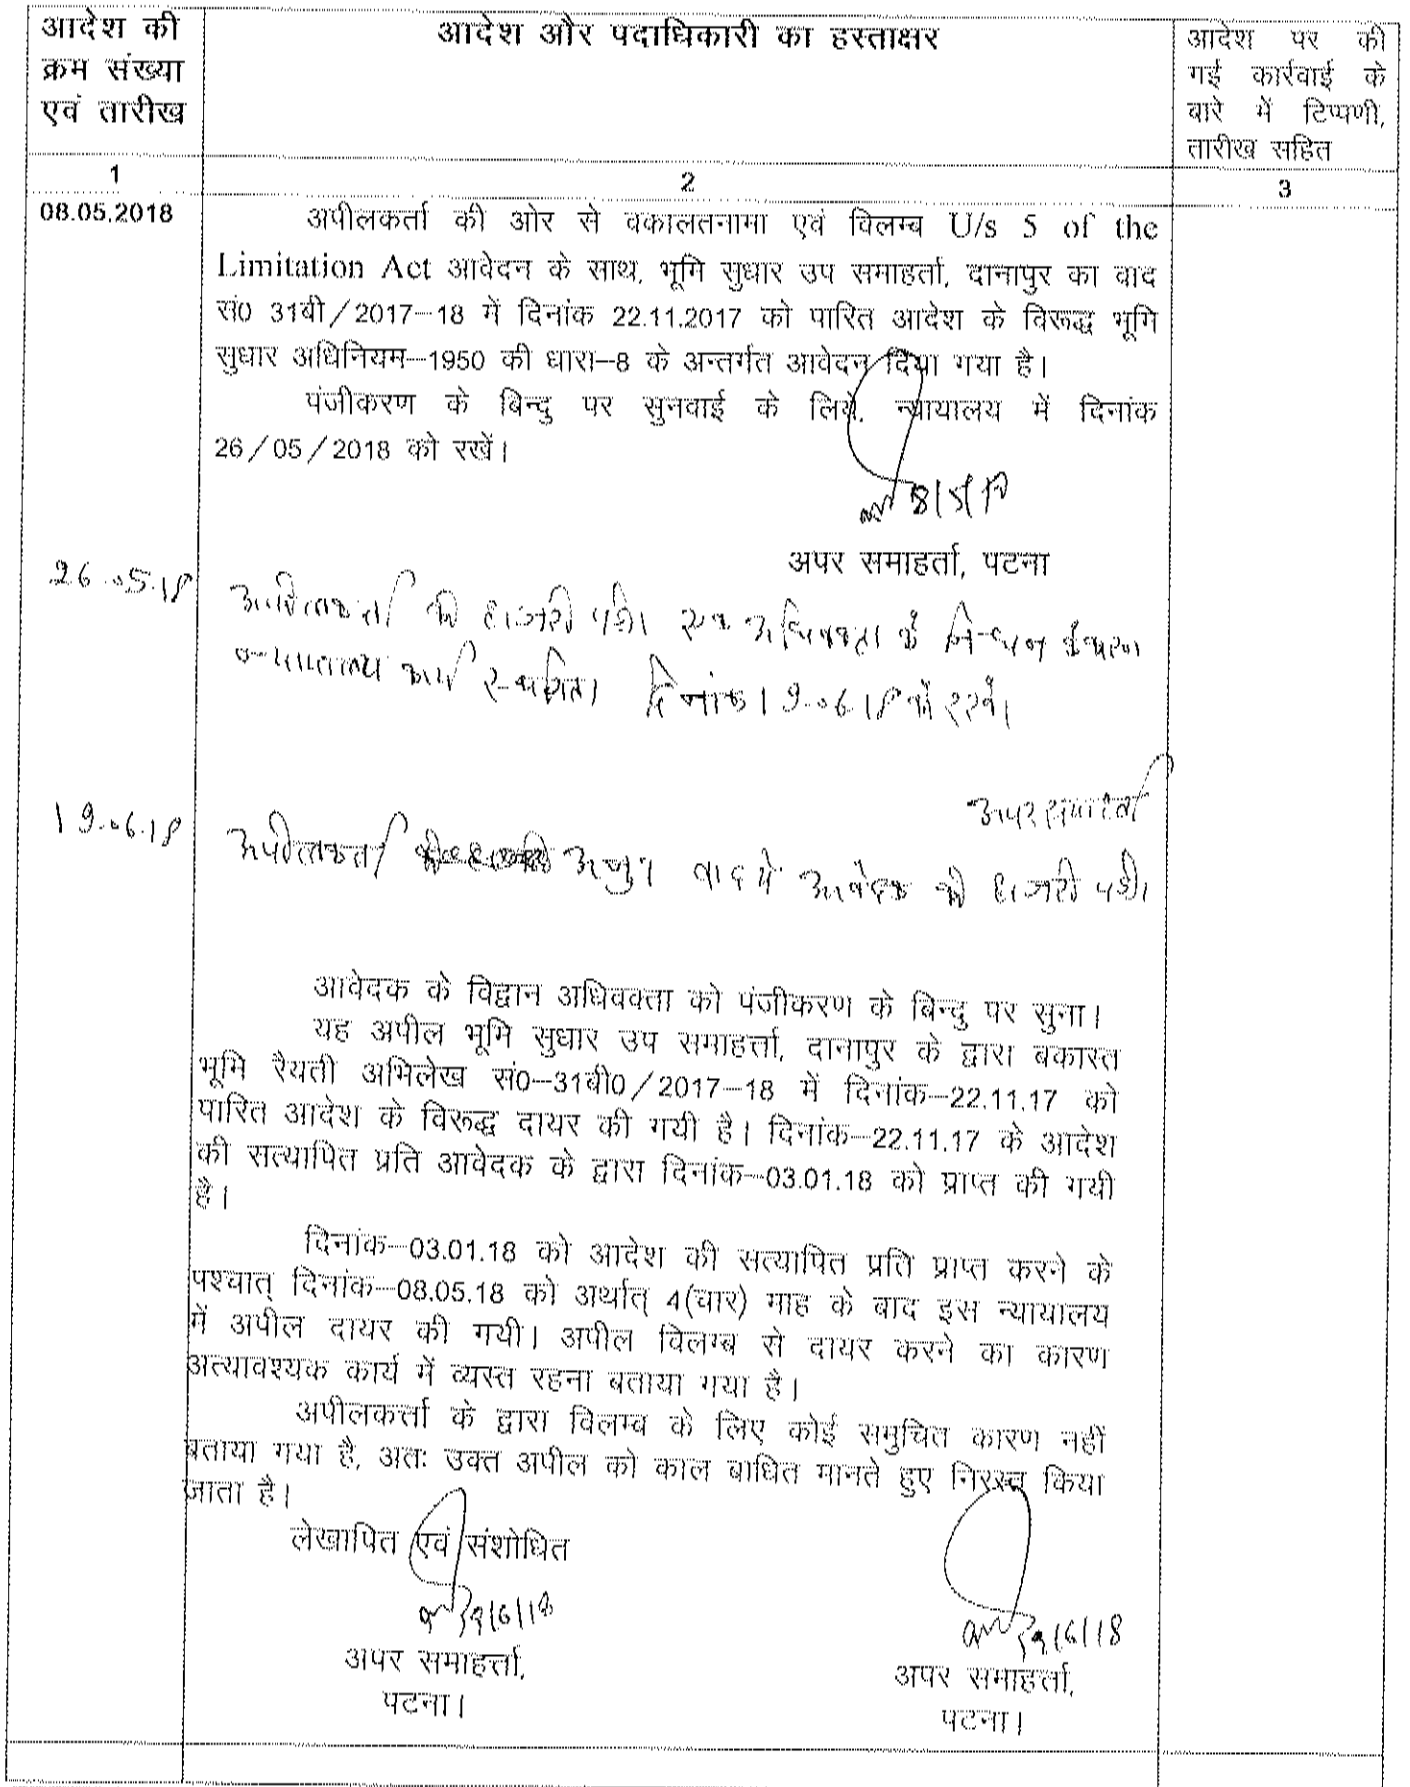 आदेश की
क्रम संख्या
एवं तारीख
आदेश और पदाधिकारी का हस्ताक्षर
आदेश पर की
गई कार्रवाई के
बारे में टिप्पणी,
तारीख सहित
1
2
3
08.05.2018
अपीलकर्ता की ओर से वकालतनामा एवं विलम्ब U/s 5 of the
Limitation Act आवेदन के साथ, भूमि सुधार उप समाहर्ता, दानापुर का वाद
सं0 31बी/2017-18 में दिनांक 22.11.2017 को पारित आदेश के विरूद्ध भूमि
सुधार अधिनियम-1950 की धारा-8 के अन्तर्गत आवेदन दिया गया है।
पंजीकरण के बिन्दु पर सुनवाई के लिये, न्यायालय में दिनांक
26/05/2018 को रखें।
8/5/18
अपर समाहर्ता, पटना
26.05.18
अपीलकर्ता की हाजरी पड़ी। एक अधिवक्ता के निधन के कारण
न्यायालय कार्य स्थगित। दिनांक 19.06.18 को रखें।
अपर समाहर्ता
19.06.18
अपीलकर्ता वाद में आवेदक की हाजरी पड़ी।
आवेदक के विद्वान अधिवक्ता को पंजीकरण के बिन्दु पर सुना।
यह अपील भूमि सुधार उप समाहर्त्ता, दानापुर के द्वारा बकास्त
भूमि रैयती अभिलेख सं0-31बी0/2017-18 में दिनांक-22.11.17 को
पारित आदेश के विरूद्ध दायर की गयी है। दिनांक-22.11.17 के आदेश
की सत्यापित प्रति आवेदक के द्वारा दिनांक-03.01.18 को प्राप्त की गयी
है।
दिनांक-03.01.18 को आदेश की सत्यापित प्रति प्राप्त करने के
पश्चात् दिनांक-08.05.18 को अर्थात् 4(चार) माह के बाद इस न्यायालय
में अपील दायर की गयी। अपील विलम्ब से दायर करने का कारण
अत्यावश्यक कार्य में व्यस्त रहना बताया गया है।
अपीलकर्त्ता के द्वारा विलम्ब के लिए कोई समुचित कारण नहीं
बताया गया है, अतः उक्त अपील को काल बाधित मानते हुए निरस्त किया
जाता है।
लेखापित एवं संशोधित
19/6/18
19/6/18
अपर समाहर्त्ता,
पटना।
अपर समाहर्त्ता,
पटना।